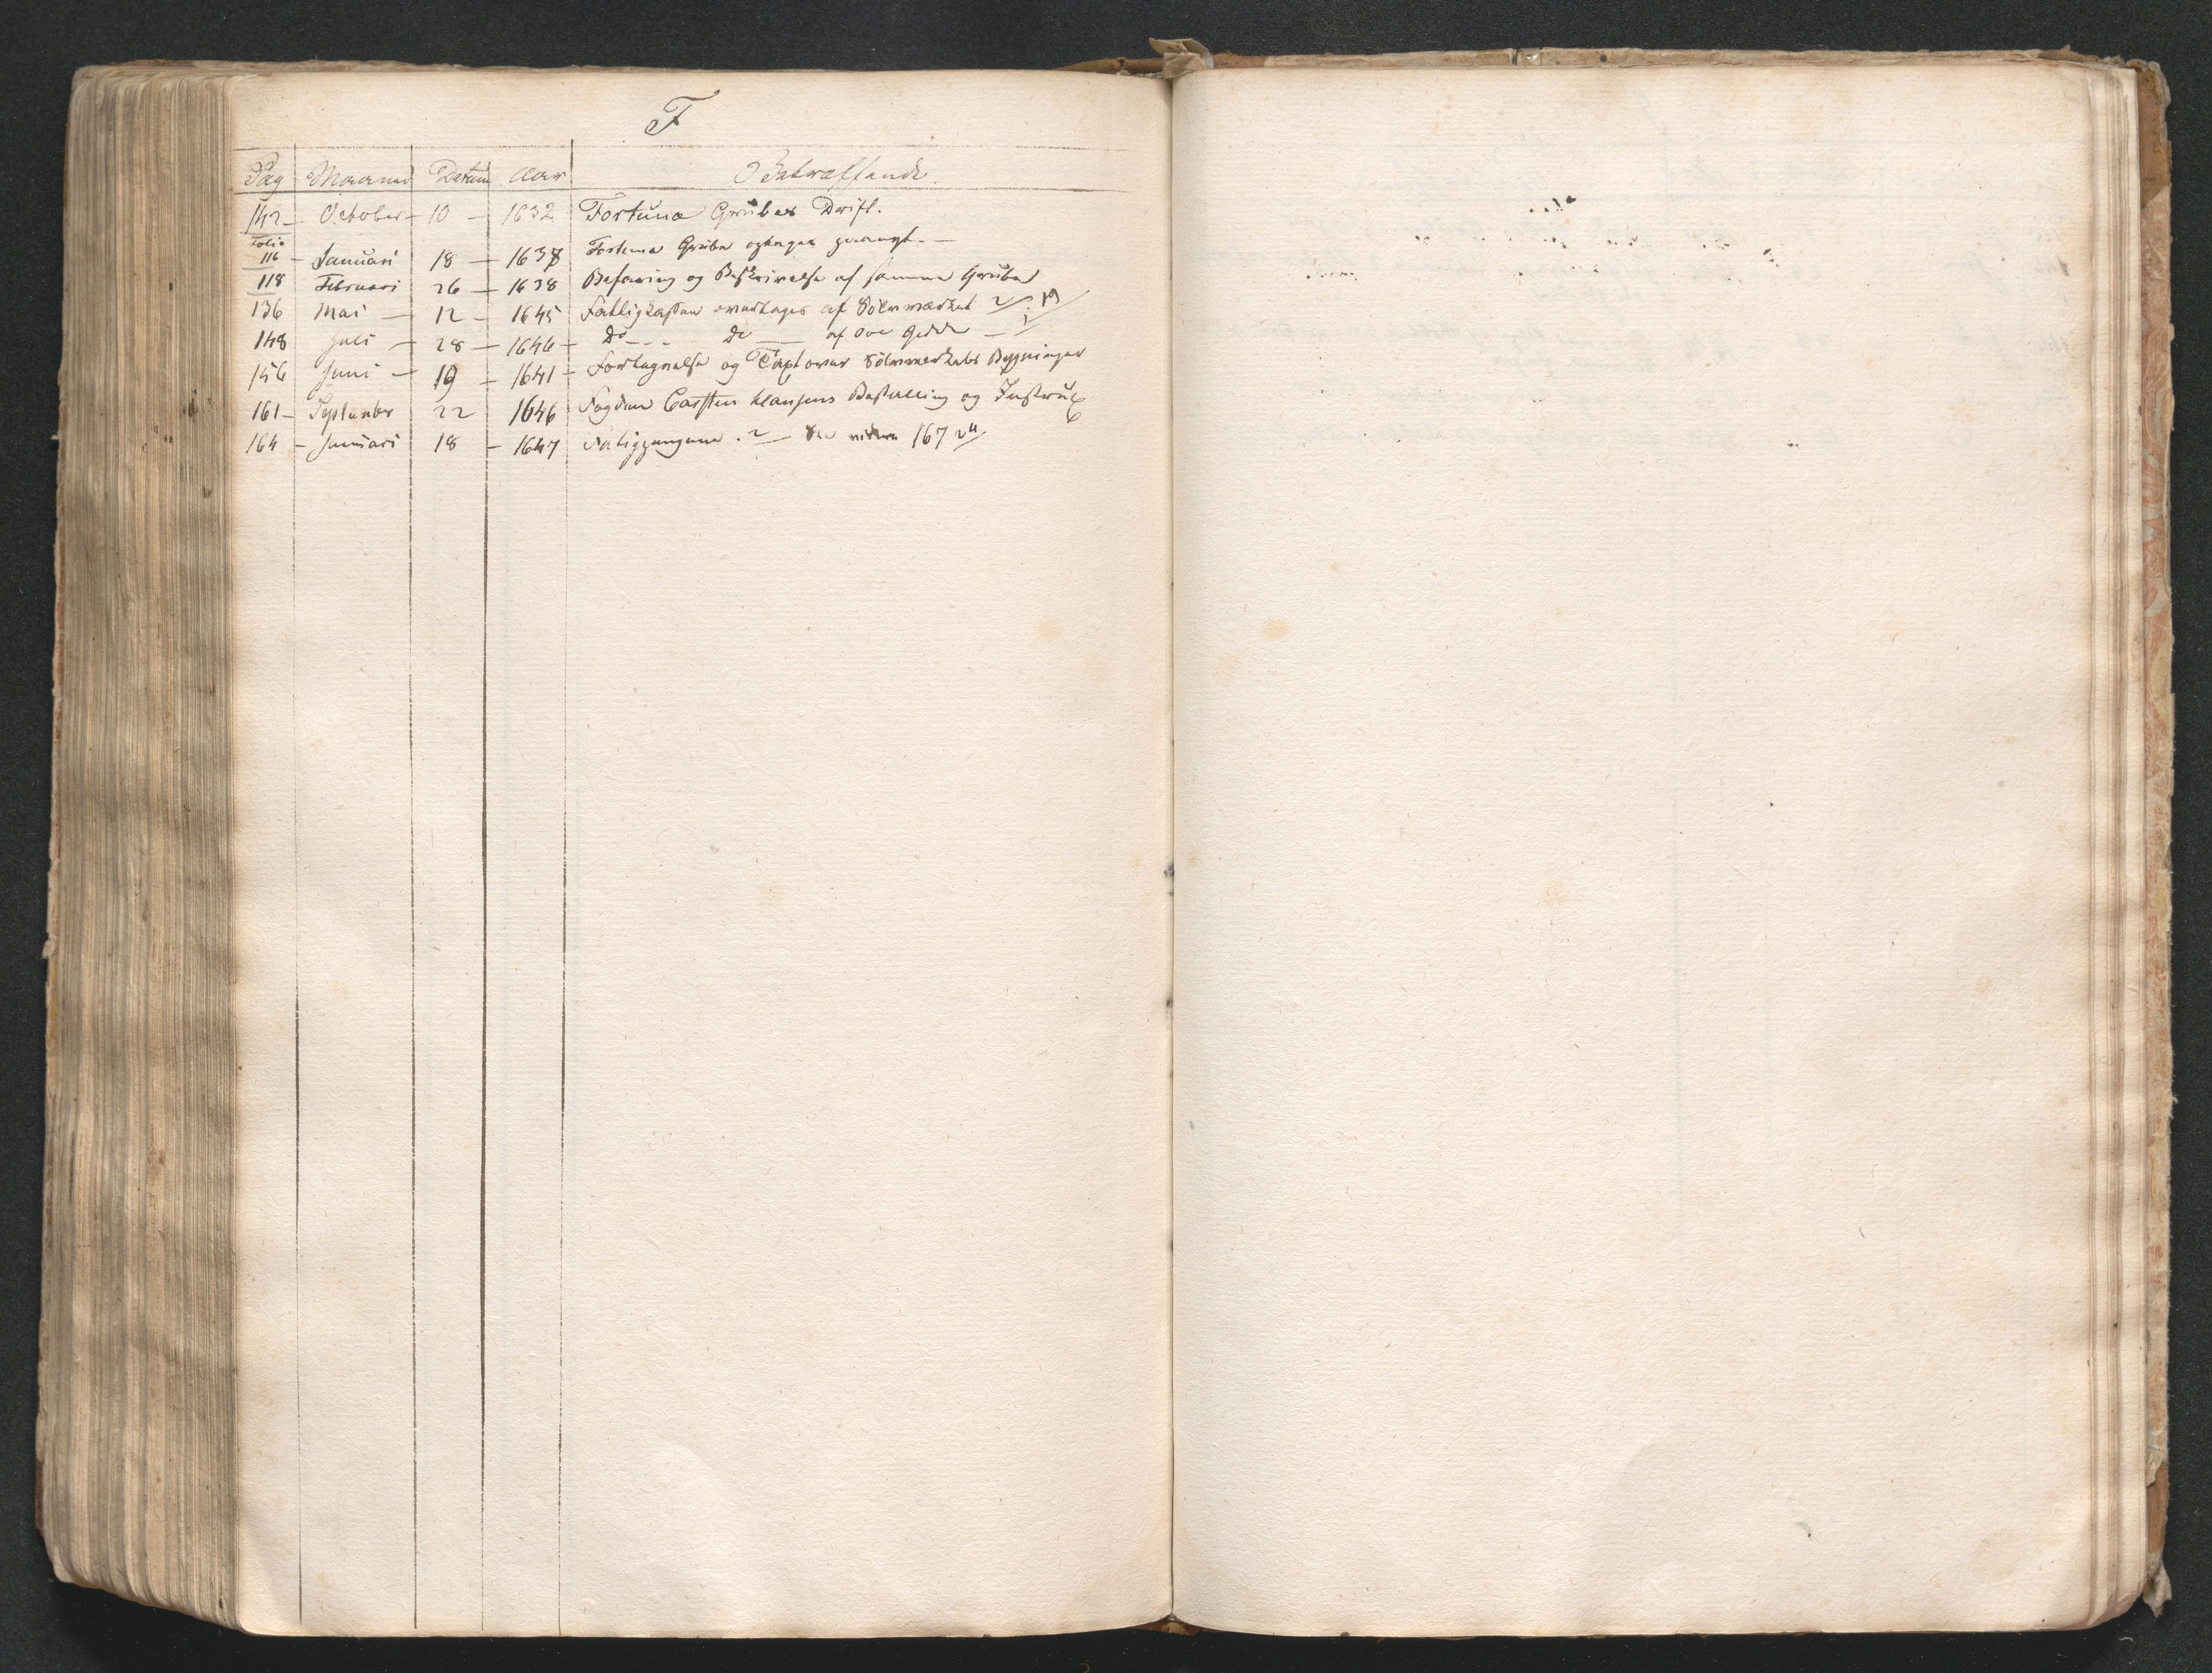 F
Pag Maaned Datum Aar Betræffende
142 - October - 10 - 1632 Fortuna Grubes Drift.
Folio
116 - Januari 18 - 1638 Fortuna Grube optages paanyt. -
118 Februari 26 - 1638 Befaring og Beskrivelse af samme Grube
136 Mai - 12 - 1645 Fattigkassen overtages af Sölvværket
148 Juli - 28 - 1646 - Do - - - Do - af Ove Gedde -
156 Juni - 19 - 1641 - Fortegnelse og Taxt over Sölvværkets Bygninger
161 - September 22 1646 Fogden Carsten Clausens Bestalling og Instrux
164 - Januari 18 - 1647 Fatigpengene . See videre 167